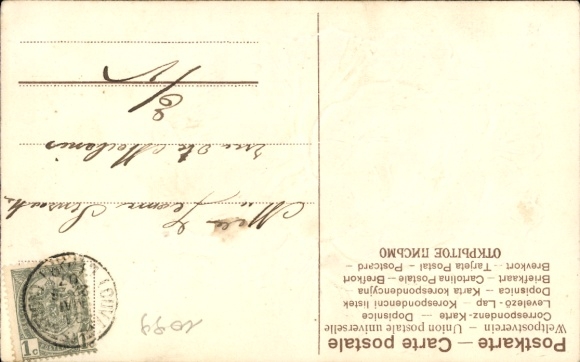 Postkarte — Carte postale
Weltpostverein — Union postale universelle
Correspondenz-Karte — Dopisnice
Levelező-Lap — Korespondenční lístek
Dopisnica — Karta korespondencyjna
Briefkaart — Cartolina Postale — Brefkort
Brevkort — Tarjeta Postal — Postcard
ОТКРЫТОЕ ПИСЬМО
Melle Jeanne
rue de Malines
E/V
1c
1099